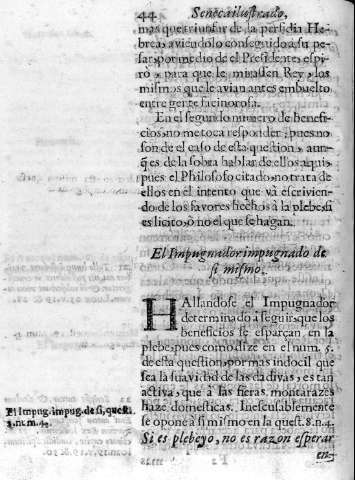 44 Seneca ilustrado,
mas que triunfar de la perfidia He-
brea, aviendolo conseguido à su pe-
sar, por medio de el Presidente: espi-
rò, para que le mirassen Rey, los
mismos que le avian antes embuelto
entre gente facinorosa.
En el segundo numero de benefi-
cios no me toca responder, pues no
son de el caso de esta question, y aun-
q̃ es de la sobra hablar de ellos aqui,
pues el Philosofo citado, no trata de
ellos en el intento que và escrivien-
do de los favores hechos à la plebe, si
es licito, ò no el que se hagan.
El Impugnador impugnado de
si mismo.
HAllandose el Impugnador
determinado à seguir, que los
beneficios se esparçan en la
plebe, pues como dize en el num. 5.
de esta question, por mas indocil que
sea la suavidad de las dadivas, es tan
activa, que à las fieras montarazes
haze domesticas. Inescusablemente
se opone à si mismo en la quest. 8. n. 4.
Si es plebeyo, no es razon esperar
en-
El Impug. impug. de si, quest.
8. num. 4.